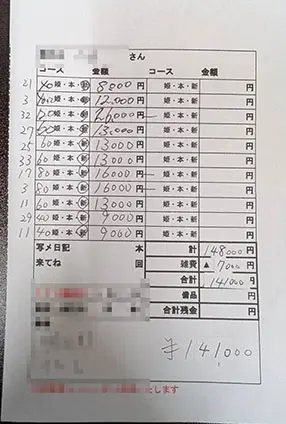 さん
コース 金額 コース 金額
21 40 姫・本・新 8000円 姫・本・新 円
3 姫・本・新 12,000円 姫・本・新 円
32 120 姫・本・新 26,000円 姫・本・新 円
27 60 姫・本・新 13,000円 姫・本・新 円
25 60 姫・本・新 13000円 姫・本・新 円
33 60 姫・本・新 13000円 姫・本・新 円
17 80 姫・本・新 16000円 姫・本・新 円
3 80 姫・本・新 16000円 姫・本・新 円
11 60 姫・本・新 13000円 姫・本・新 円
29 40 姫・本・新 9000円 姫・本・新 円
11 40 姫・本・新 9000円 姫・本・新 円
写メ日記 本 計 148000円
来てね 回 雑費 ▲ 7000円
合計 141000円
備品 円
合計残金 円
¥141,000
たします